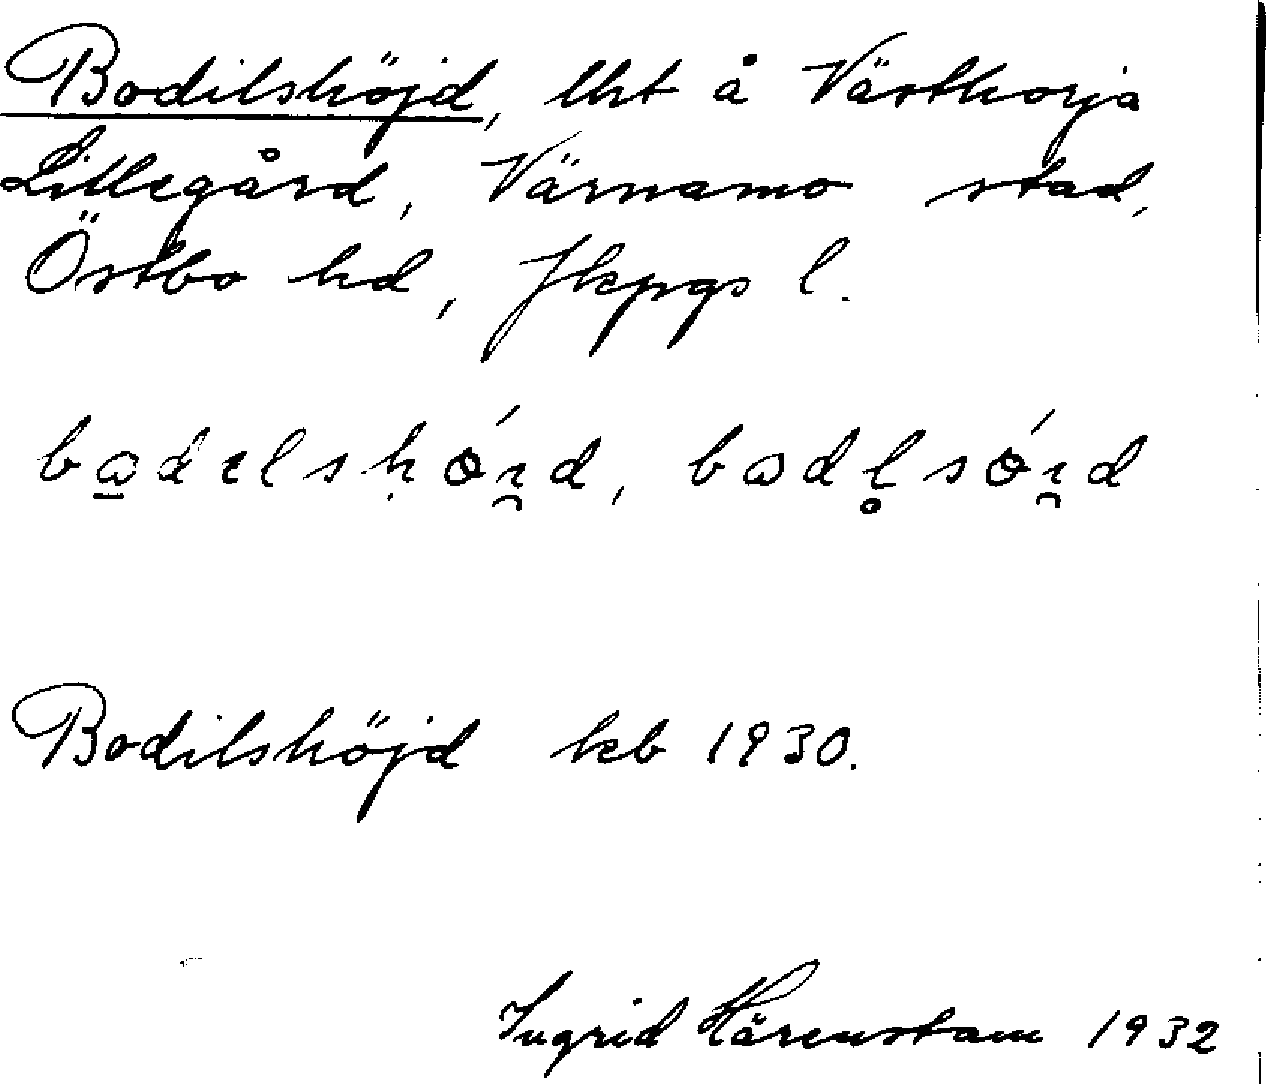 Bodilshöjd, lht å Västhorja
Lillegård, Värnamo stad,
Östbo hd, Jkpgs l.
Bodilshöjd keb 1930.
Ingrid Härenstam 1932